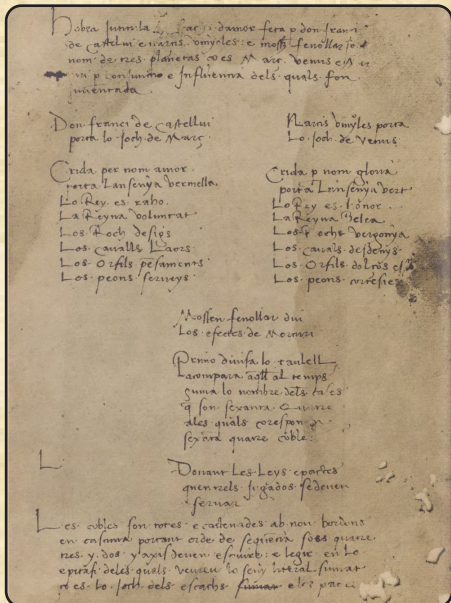 hobra
damor feta p don franci
de castelui e narcis vinyoles e mossen fenollar
nom de tres planetas Març Venus e
e Influencia dels quals fon
inventada
Don franci de Castellui
porta lo Joch de Març
Crida per nom amor
porta Lansenya vermella
Lo Rey es raho
La Reyna voluntat
Los Roch desigs
Los cavalls Laors
Los Orfils pesaments
Los peons serveys
Narcis vinyles porta
Lo Joch de Venus
Crida p nom gloria
porta Lansenya vert
Lo Rey es honor
La Reyna belea
Los Rochs vergonya
Los cavals desdenys
Los Orfils dolços
Los peons cortesies
Mossen fenollar diu
Los efectes de Mercuri
Primo divisa lo taulell
acompara aquell al temps
suma lo nombre dels cases
q son sexanta quatre
ales quals corespon
sexata quatre coble
L
Donant Les Leys e pactes
quen tels Jugados se deven
servar
Les cobles son totes encadenades ab nou bordons
en casuna portant orde de sequecia
tres y dos y axis deven escriure e legir en lo
epitafi deles quals veureu lo seny literal
lo Joch dels escachs